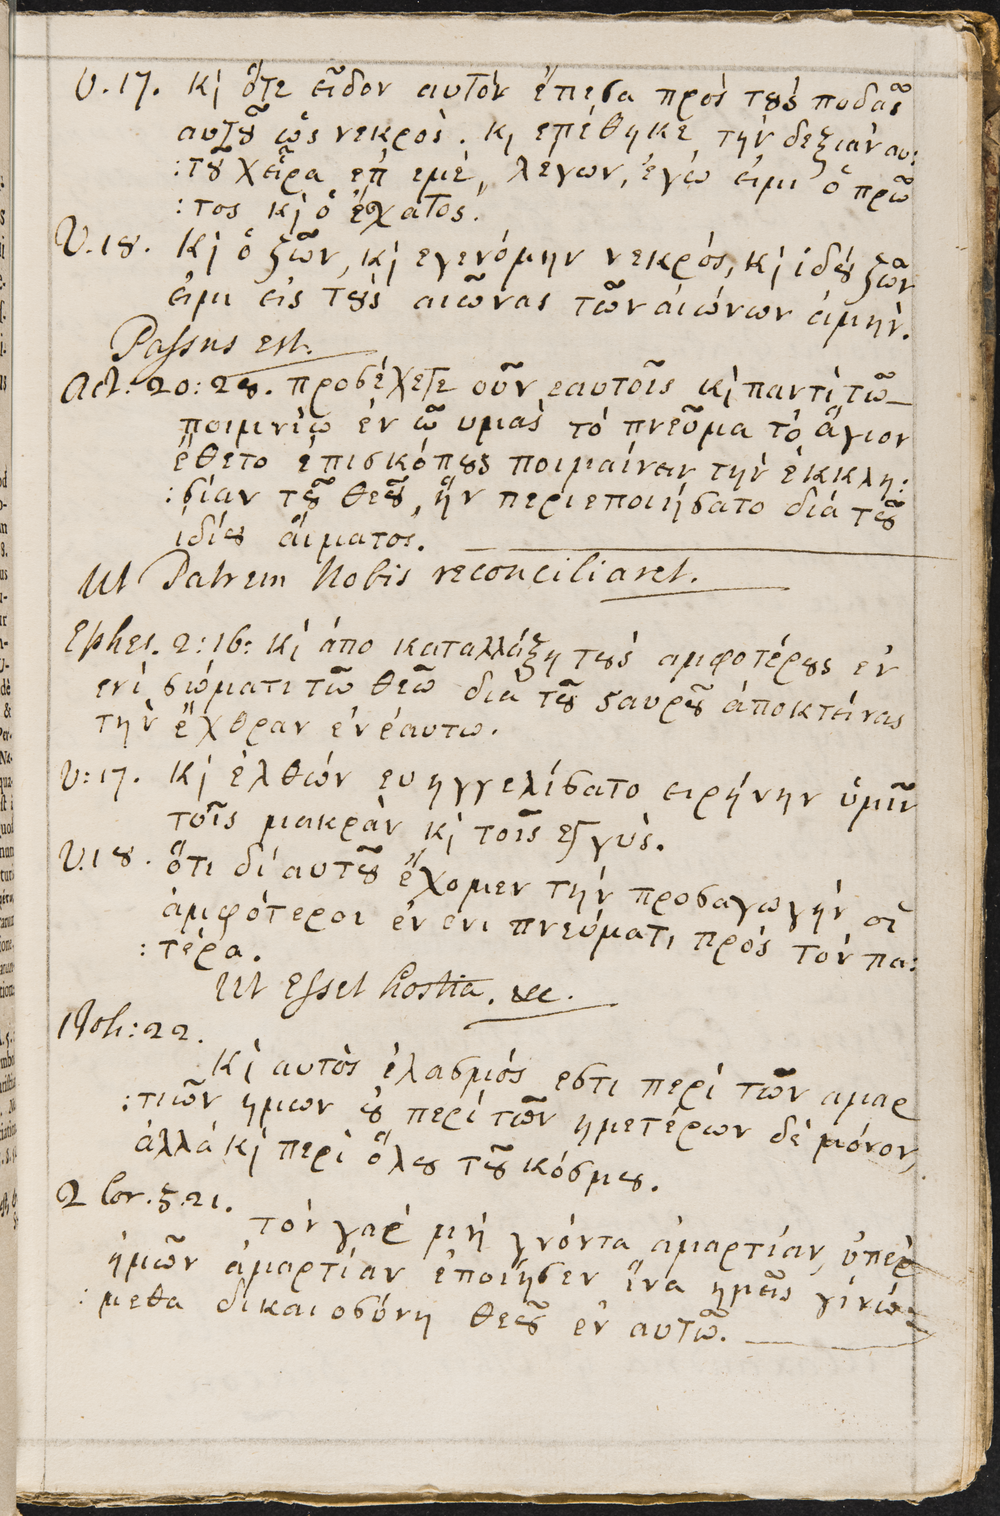 V. 17. Κὶ ὅτε εἶδον αυτὸν ἔπεσα πρὸς τȣ̀ς ποδας͂
αυτȣ͂ ὡς νεκρὸς. κὶ επέθηκε τὴν δεξιὰν αυ:
:τȣ͂ χεῖρα επ' εμὲ, λέγων, ἐγώ ειμι ὁ πρῶ
:τος κὶ ὁ ἔχατος.
V. 18. Κὶ ὁ ζῶν, κὶ εγενόμην νεκρός, κὶ ἰδȣ́ ζῶν
ειμι εις τȣ̀ς αιῶνας τῶν αιώνων ἀμήν.
Passus est.
Act: 20: 28. προσέχετε οὖν εαυτοῖς κὶ παντὶ τῶ
ποιμνίῳ ἐν ᾧ υμας̀ τὸ πνεῦμα τὸ ἅγιον
ἔθετο ἐπισκόπȣς ποιμαίνειν τὴν ἐκκλη:
:σίαν τȣ͂ θεȣ͂, ἣν περιεποιήσατο διὰ τȣ͂
ιδίȣ ἅιματος.
Ut Patrem Nobis reconciliaret.
Ephes. 2: 16: Κὶ ἀπο καταλλάξῃ τȣ̀ς αμφοτέρȣς εν
ενὶ σώματι τῶ θεῶ διὰ τȣ͂ ϛαυρȣ͂ ἀποκτείνας
τὴν ἔχθραν εν ἑαυτω.
V: 17. Κὶ ἐλθὼν ευηγγελίσατο ειρήνην ὑμῖν
τοῖς μακρὰν κὶ τοῖς εγγὺς.
V. 18. ὅτι δι' αυτȣ͂ ἔχομεν τὴν προσαγωγὴν οἱ
ἀμφότεροι εν ενι πνεύματι πρὸς τὸν πα:
:τέρα.
Ut Esset hostia. &c.
1 Joh: 2 2.
Κὶ αυτὸς ἐλασμός εστι περὶ τῶν αμαρ
:τιῶν ημων ȣ̓ περὶ τῶν ημετέρων δὲ μόνον,
ἀλλὰ κὶ περὶ ὅλȣ τȣ͂ κόσμȣ.
2 Cor. 5. 21.
τὸν γαρ μὴ γνόντα ἁμαρτίαν, ὑπὲρ
ἡμῶν ἁμαρτίαν ἐποίησεν ἵνα ημεῖς γινώ:
:μεθα δικαιοσύνη θεȣ͂ εν αυτῶ.